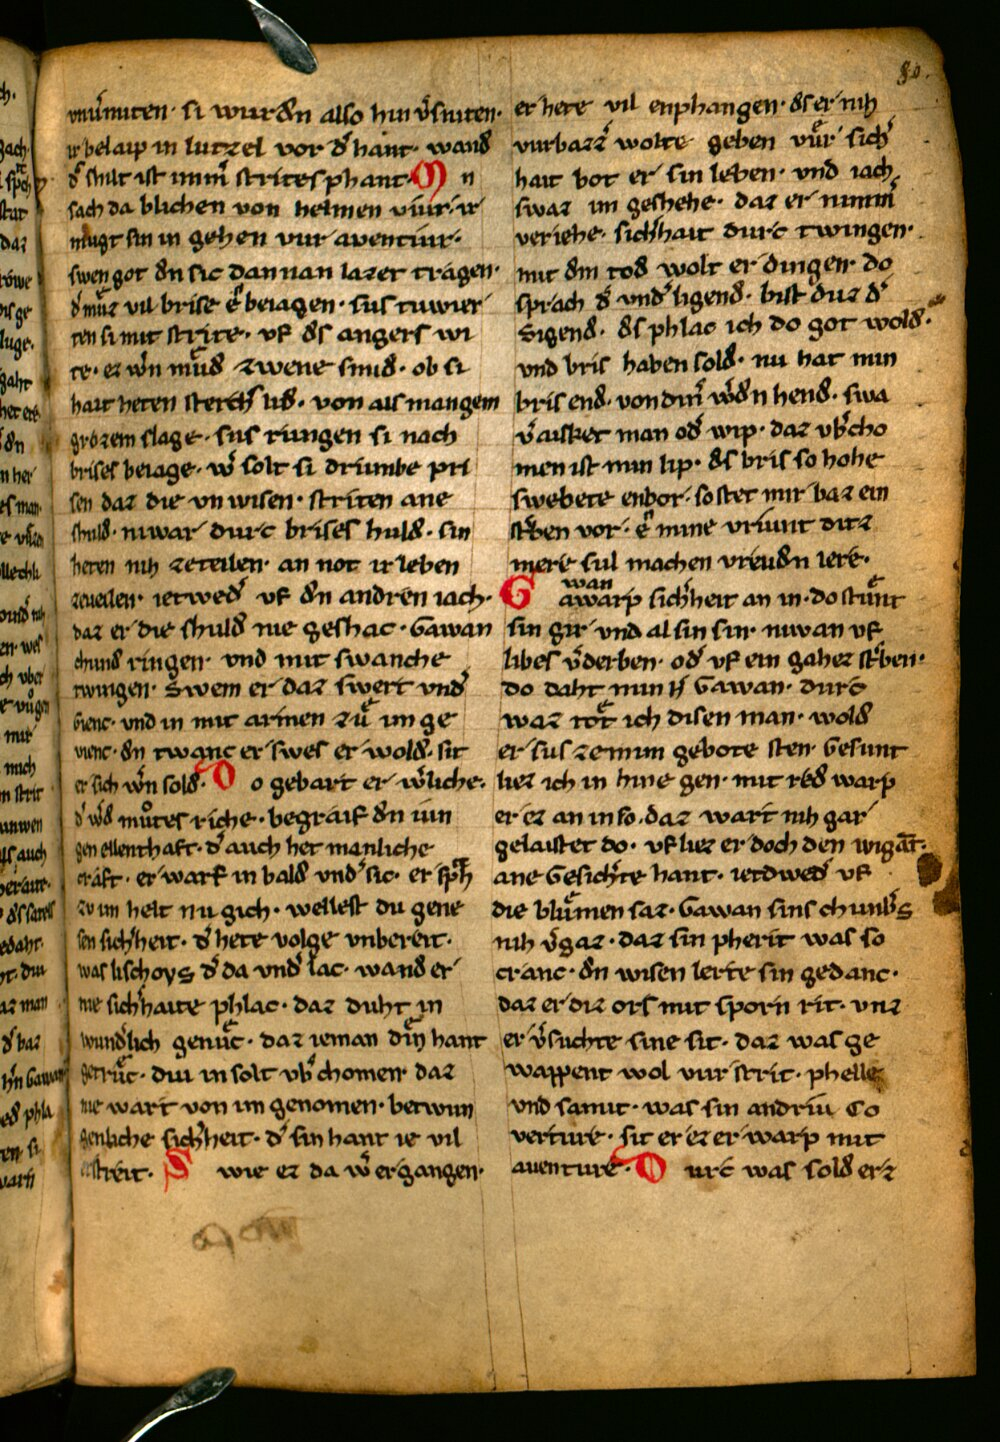 80.
mv́rniten · si wurdn also hin v̾sniten ·
ir belaip in lutzel vor d̾ hant · wand
d̾ shilt ist imm̄ strites phant · M n
sach da blichen von helmen viur · ir
mugt sin in gehen vur aventiur ·
swen got dn sic dannan lazet tragen ·
d̾ můz vil brise e᷑ beiagen · sus tuwur
ten si mit strite · vf ds angers wi
te · ez w̾n můd zwene smid · ob si
hait heten sterch̾ lid · von als mangem
grozem slage · sus rungen si nach
brises beiage · w̾ solt si drumbe pri
sen daz die vn wisen · striten ane
shuld · niwar durc brises huld · sin
heten nih zeteilen · an not ir leben
zeueilen · ietwed̾ vf dn andren iach ·
daz er die shuld nie geshac · Gawan
chund ringen · vnd mit swanche
twingen · Swem er daz swert vnd̾
gienc · vnd in mit armen zů im ge
vienc · dn twanc er swes er wold · sit
er sich w̾n sold · D o gebart er w̾liche ·
d̾ w̾d můtes riche · begraif dn iun
gen ellenthaft · d̾ auch het manliche
craft · er warf in bald vnd̾ sic · er sph̾
zv im helt nu gich · wellest du gene
sen sich̾heit · d̾ bete volge vnbereit ·
was lischoys d̾ da vnd̾ lac · wand er
nie sich̾haite phlac · daz duht in
wund̾lich genůc · daz ieman diu hant
getrůc · diu in solt vb̾ chomen daz
nie wart von im genomen · betwun
genliche sich̾heit · d̾ sin hant ie vil
erstreit · S wie ez da w̾ ergangen ·
er hete vil enphangen · ds er nih
vurbazz wolte geben vůr sich̾
hait bot er sin leben · vnd iach
swaz im geshehe · daz er nimm̄
veriehe · sich̾hait durc twingen ·
mit dm tod wolt er dingen · do
sprach d̾ vnd̾ ligend · bist duz d̾
Sigend · ds phlac ich do got wold ·
vnd bris haben sold · nu hat min
bris end · von din̄ w̾dn hend · swa
v̾aisket man od̾ wip · daz vb̾cho
men ist min lip · ds bris so hohe
swebete enbor · so stet mir baz ein
st̾ben vor · e᷑ mine vriunt ditz
mere sul machen vreudn lere ·
G wan
awarp sich̾heit an in · do stůnt
sin gir vnd al sin sin · niwan vf
libes v̾derben · od̾ vf ein gahez st̾ben ·
do daht min h̾ Gawan · durc
waz tot ich disen man · wold
er sus ze minn gebote sten · Gesunt
liez ich in hine gen · mit red warp
er ez an in so · daz wart nih gar
gelaistet do · vf liez er doch den wigāt ·
ane Gesich̾te hant · ietdwed̾ vf
die blůmen saz · Gawan sins chunb̾s
nih v̾gaz · daz sin pherit was so
cranc · dn wisen lerte sin gedanc ·
daz er diz ors mit sporn rit · vnz
er v̾suchte sine sit · daz was ge
wappent wol vur strit · phelle
vnd samit · was sin andriu co
verture · sit er ez er warp mit
aventure · D urc was sold erz